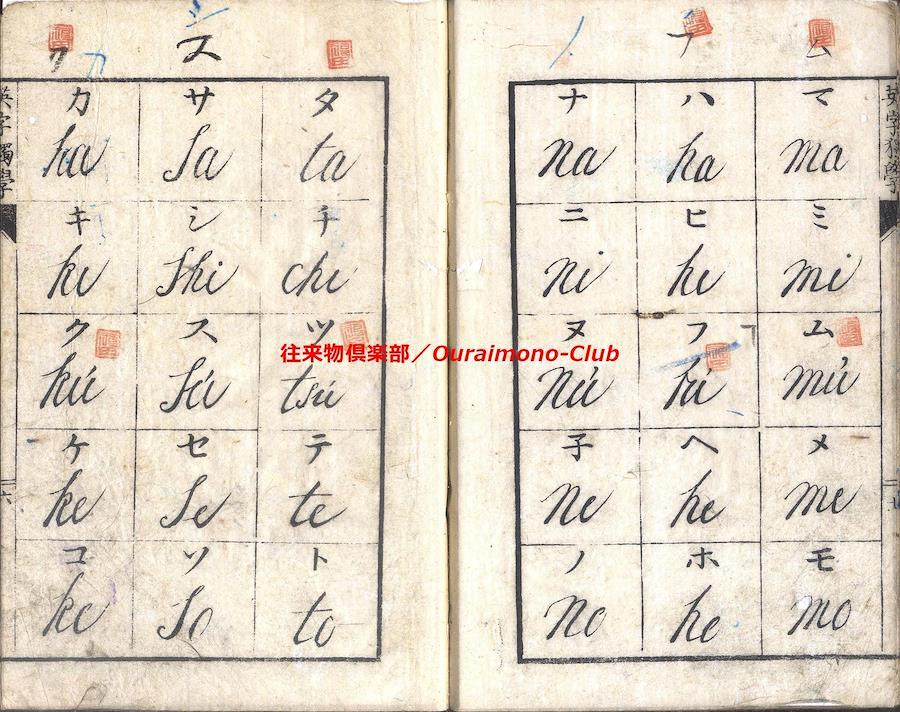 シ
ク カ ス
英字獨學
カ サ タ
ka sa ta
キ シ チ
ki shi chi
ク ス ツ
kú sú tsú
ケ セ テ
ke se te
コ ソ ト
ko so to
六
フ ム
ナ ハ マ
na ha ma
ニ ヒ ミ
ni hi mi
ヌ フ ム
nú fú mú
子 ヘ メ
ne he me
ノ ホ モ
no ho mo
英字獨學
往来物倶楽部／Ouraimono-Club